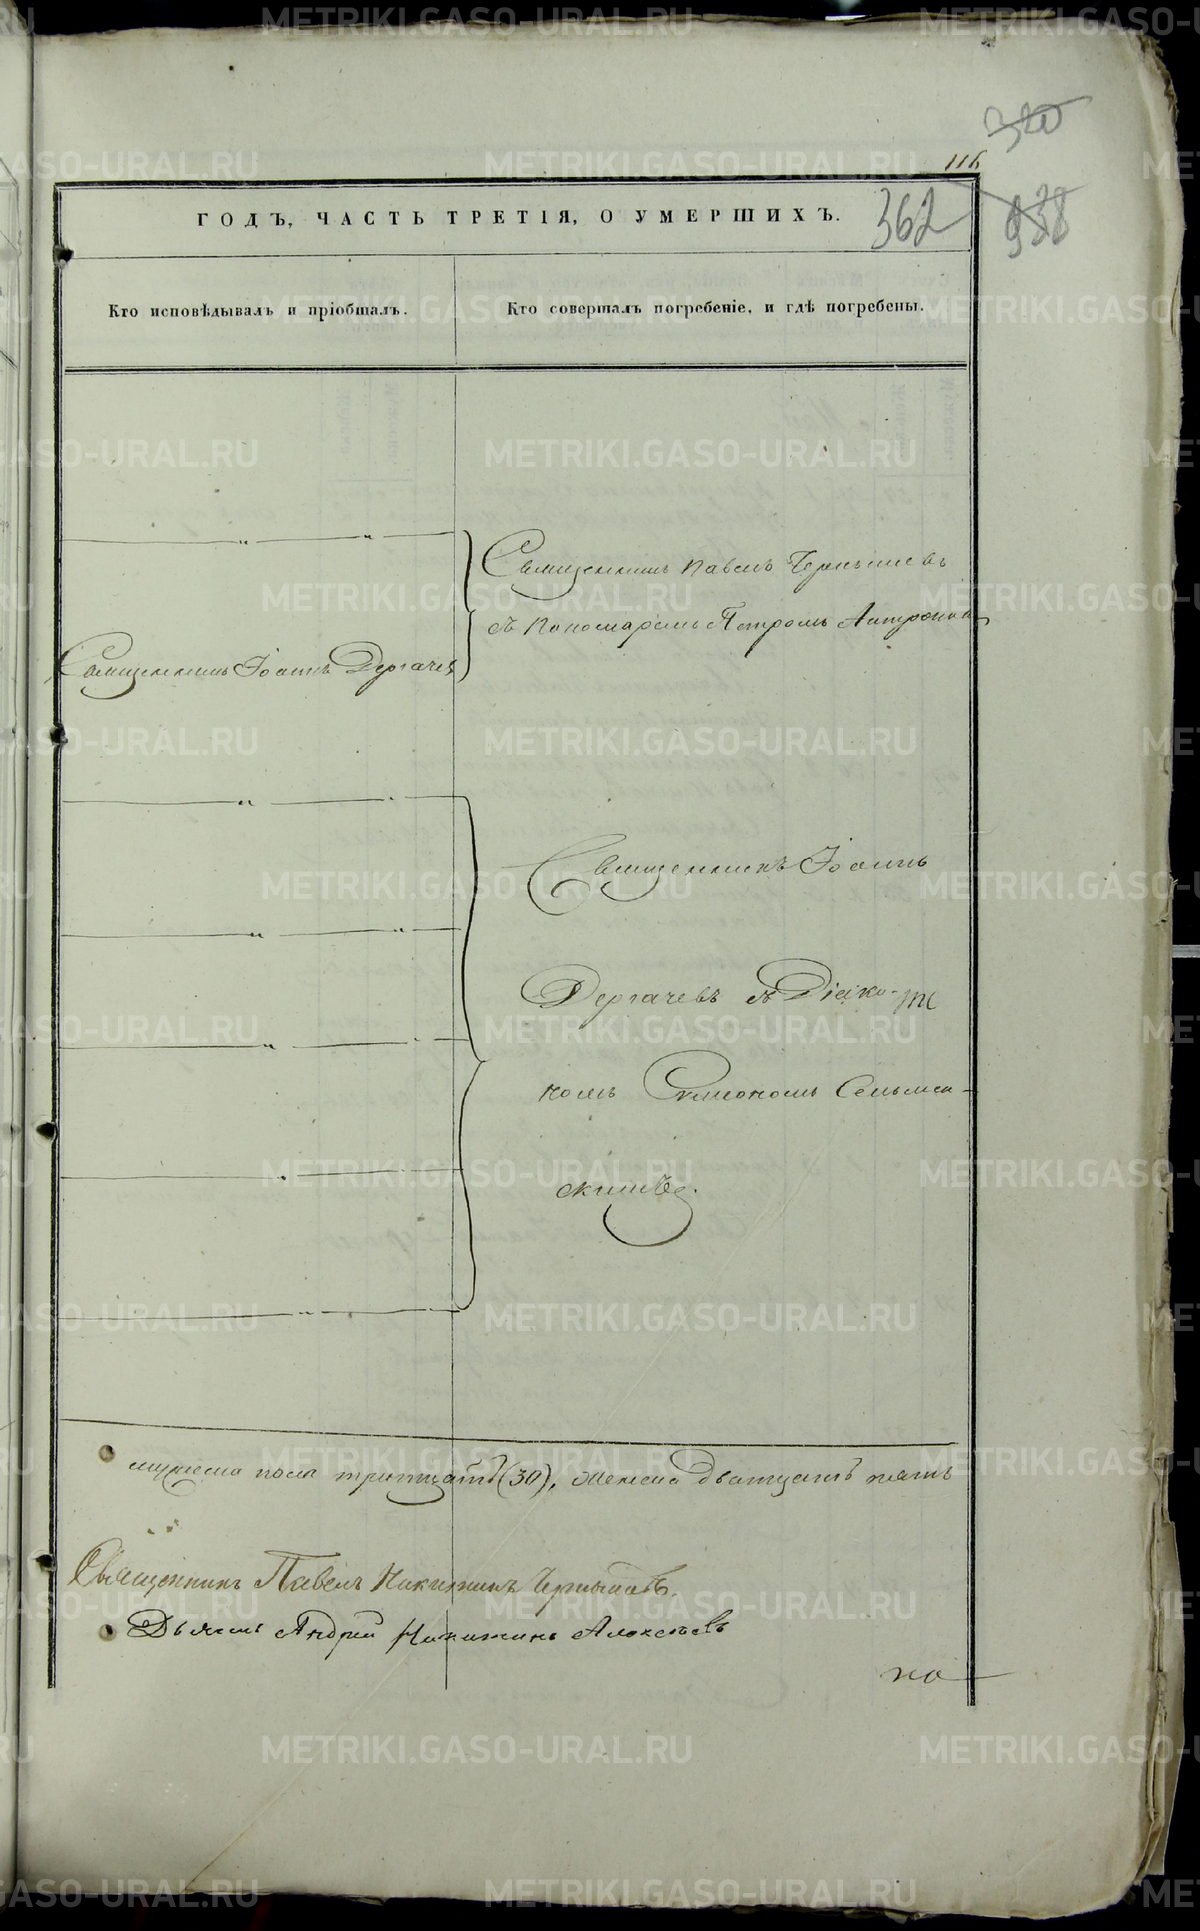 116
ГОДЪ, ЧАСТЬ ТРЕТІЯ, О УМЕРШИХЪ.
362
938
Кто исповѣдывалъ и пріобщалъ.
Кто совершалъ погребеніе, и гдѣ погребены.
Священникъ Павелъ Чернышевъ
съ Пономаремъ Петромъ
Священникъ Іоаннъ Дергачев
Священникъ Іоаннъ
Дергачевъ съ Діако-
номъ Симономъ
мужеска пола тритцать (30), женска дватцать пять
Священникъ Павелъ Никитинъ Чернышевъ.
Дьяконъ Андрей Никитинъ Алексѣевъ
по
METRIKI.GASO-URAL.RU